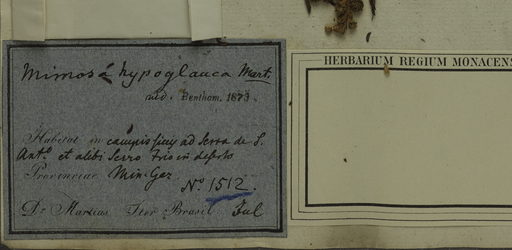 Mimosa hypoglauca Mart.
vid. Bentham. 1873.
Habitat in campis siccis ad Serra de S.
Anto. et alibi Serro Frio in deserto
Provinciae Min. Ger.
No. 1512.
Dr. Martius Iter Brasil. Jul
HERBARIUM REGIUM MONACENS